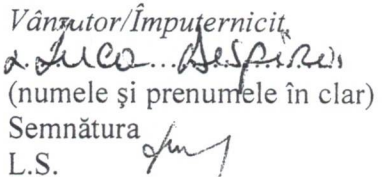 Vânzutor/Împuternicit,
Luca Despina
(numele şi prenumele în clar)
Semnătura
L.S.